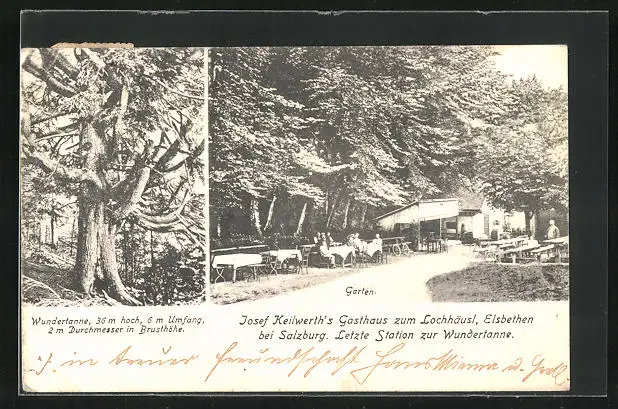 Wundertanne, 36 m hoch, 6 m Umfang,
2 m Durchmesser in Brusthöhe.
Garten.
Josef Keilwerth's Gasthaus zum Lochhäusl, Elsbethen
bei Salzburg. Letzte Station zur Wundertanne.
in treuer Freundschaft Hans Minna u.